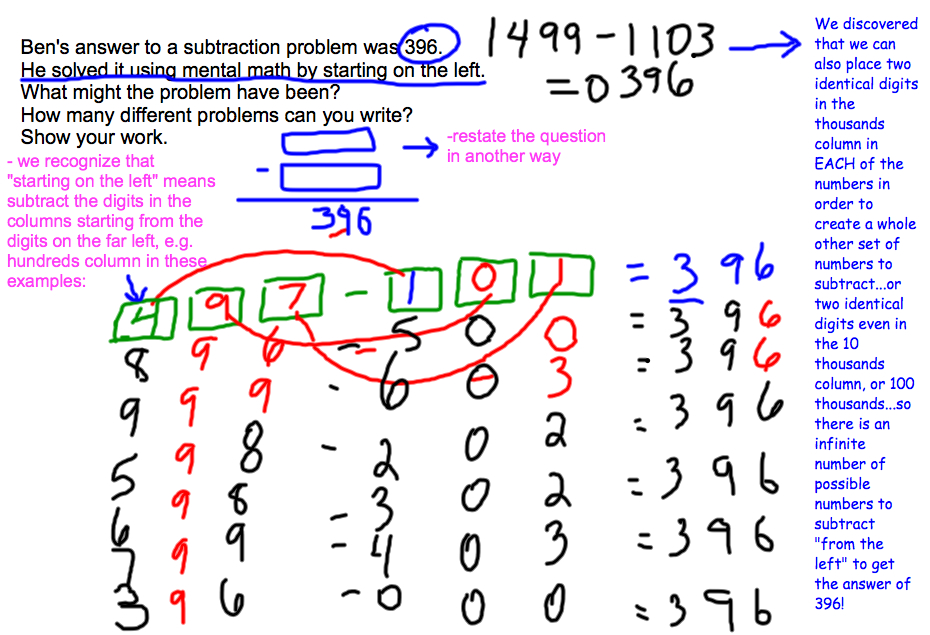 Ben's answer to a subtraction problem was 396.
He solved it using mental math by starting on the left.
What might the problem have been?
How many different problems can you write?
Show your work.
1499-1103
=0396
-restate the question
in another way
-
396
- we recognize that
"starting on the left" means
subtract the digits in the
columns starting from the
digits on the far left, e.g.
hundreds column in these
examples:
4 9 7 - 1 0 1 = 3 9 6
8 9 6 - 5 0 0 = 3 9 6
9 9 9 - 6 0 3 = 3 9 6
5 9 8 - 2 0 2 = 3 9 6
6 9 8 - 3 0 2 = 3 9 6
7 9 9 - 4 0 3 = 3 9 6
3 9 6 - 0 0 0 = 3 9 6
We discovered
that we can
also place two
identical digits
in the
thousands
column in
EACH of the
numbers in
order to
create a whole
other set of
numbers to
subtract...or
two identical
digits even in
the 10
thousands
column, or 100
thousands...so
there is an
infinite
number of
possible
numbers to
subtract
"from the
left" to get
the answer of
396!